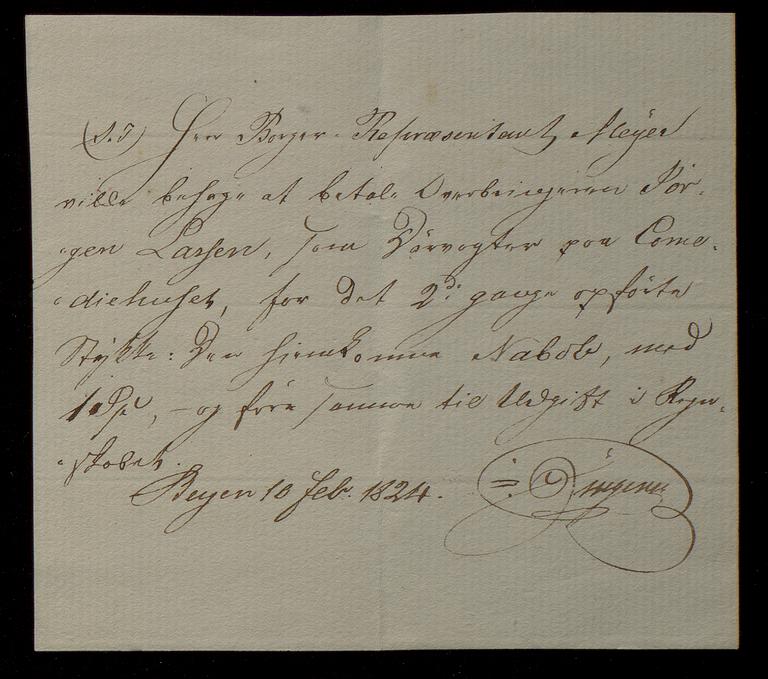 (S.T) Herr Borger-Repræsentant Meyer
ville behage at betale Overbringeren Jör-
-gen Larsen, som Dörvogter paa Come-
-diehuset, for det 2de gange opförte
Stykke: Den hiemkomne Nabob, med
1 Spd, - og före samme til Udgift i Regn-
-skabet.
Bergen 10 Feb. 1824.